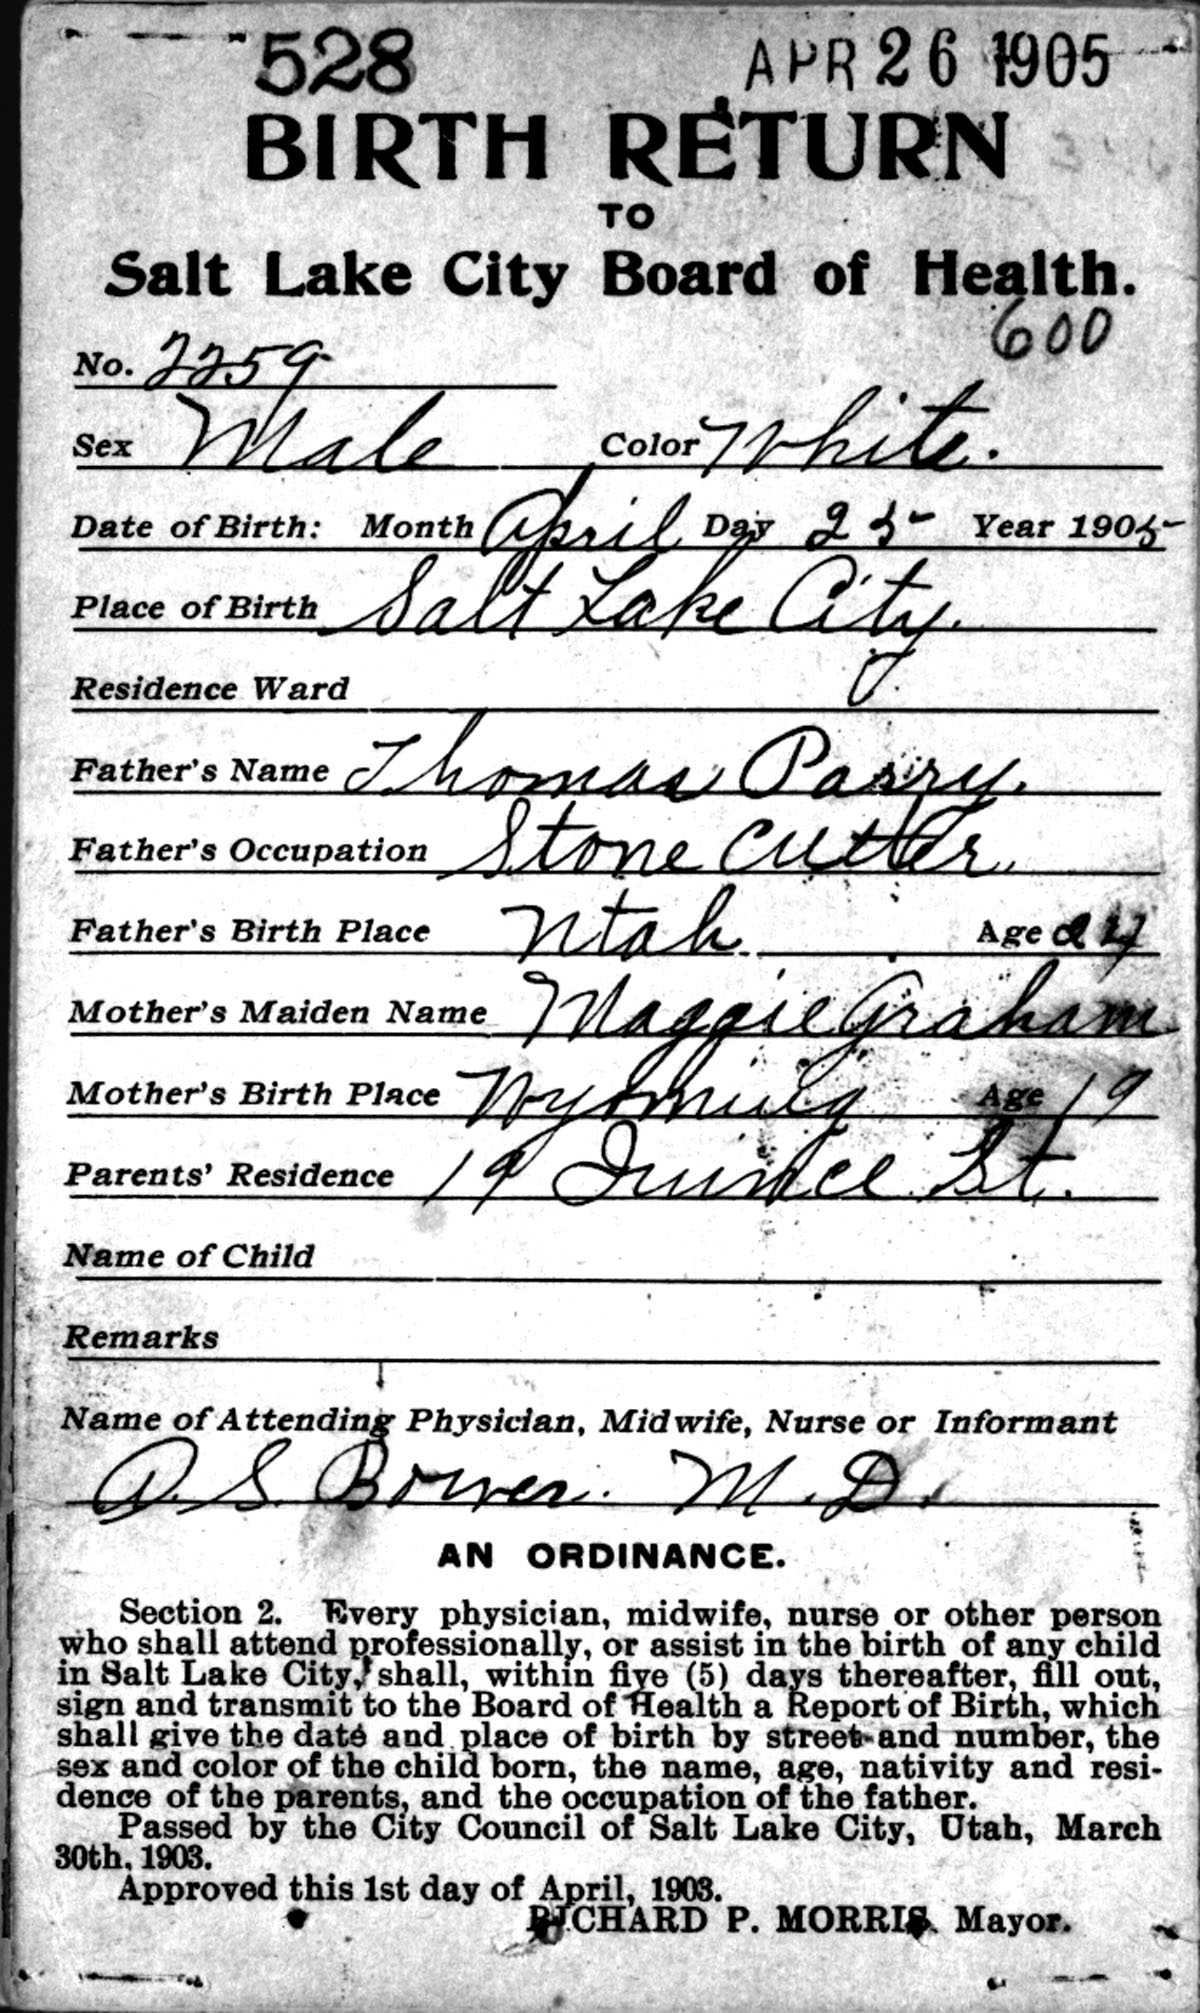 528 APR 26 1905
BIRTH RETURN
TO
Salt Lake City Board of Health.
600
No. 2259
Sex Male Color White.
Date of Birth: Month April Day 25 Year 1905
Place of Birth Salt Lake City.
Residence Ward
Father's Name Thomas Parry.
Father's Occupation Stone Cutter
Father's Birth Place Utah Age 24
Mother's Maiden Name Maggie Graham
Mother's Birth Place Wyoming Age 19
Parents' Residence 19 Quince St.
Name of Child
Remarks
Name of Attending Physician, Midwife, Nurse or Informant
S. Bower. M.D.
AN ORDINANCE.
Section 2. Every physician, midwife, nurse or other person
who shall attend professionally, or assist in the birth of any child
in Salt Lake City, shall, within five (5) days thereafter, fill out,
sign and transmit to the Board of Health a Report of Birth, which
shall give the date and place of birth by street and number, the
sex and color of the child born, the name, age, nativity and resi-
dence of the parents, and the occupation of the father.
Passed by the City Council of Salt Lake City, Utah, March
30th, 1903.
Approved this 1st day of April, 1903.
RICHARD P. MORRIS. Mayor.